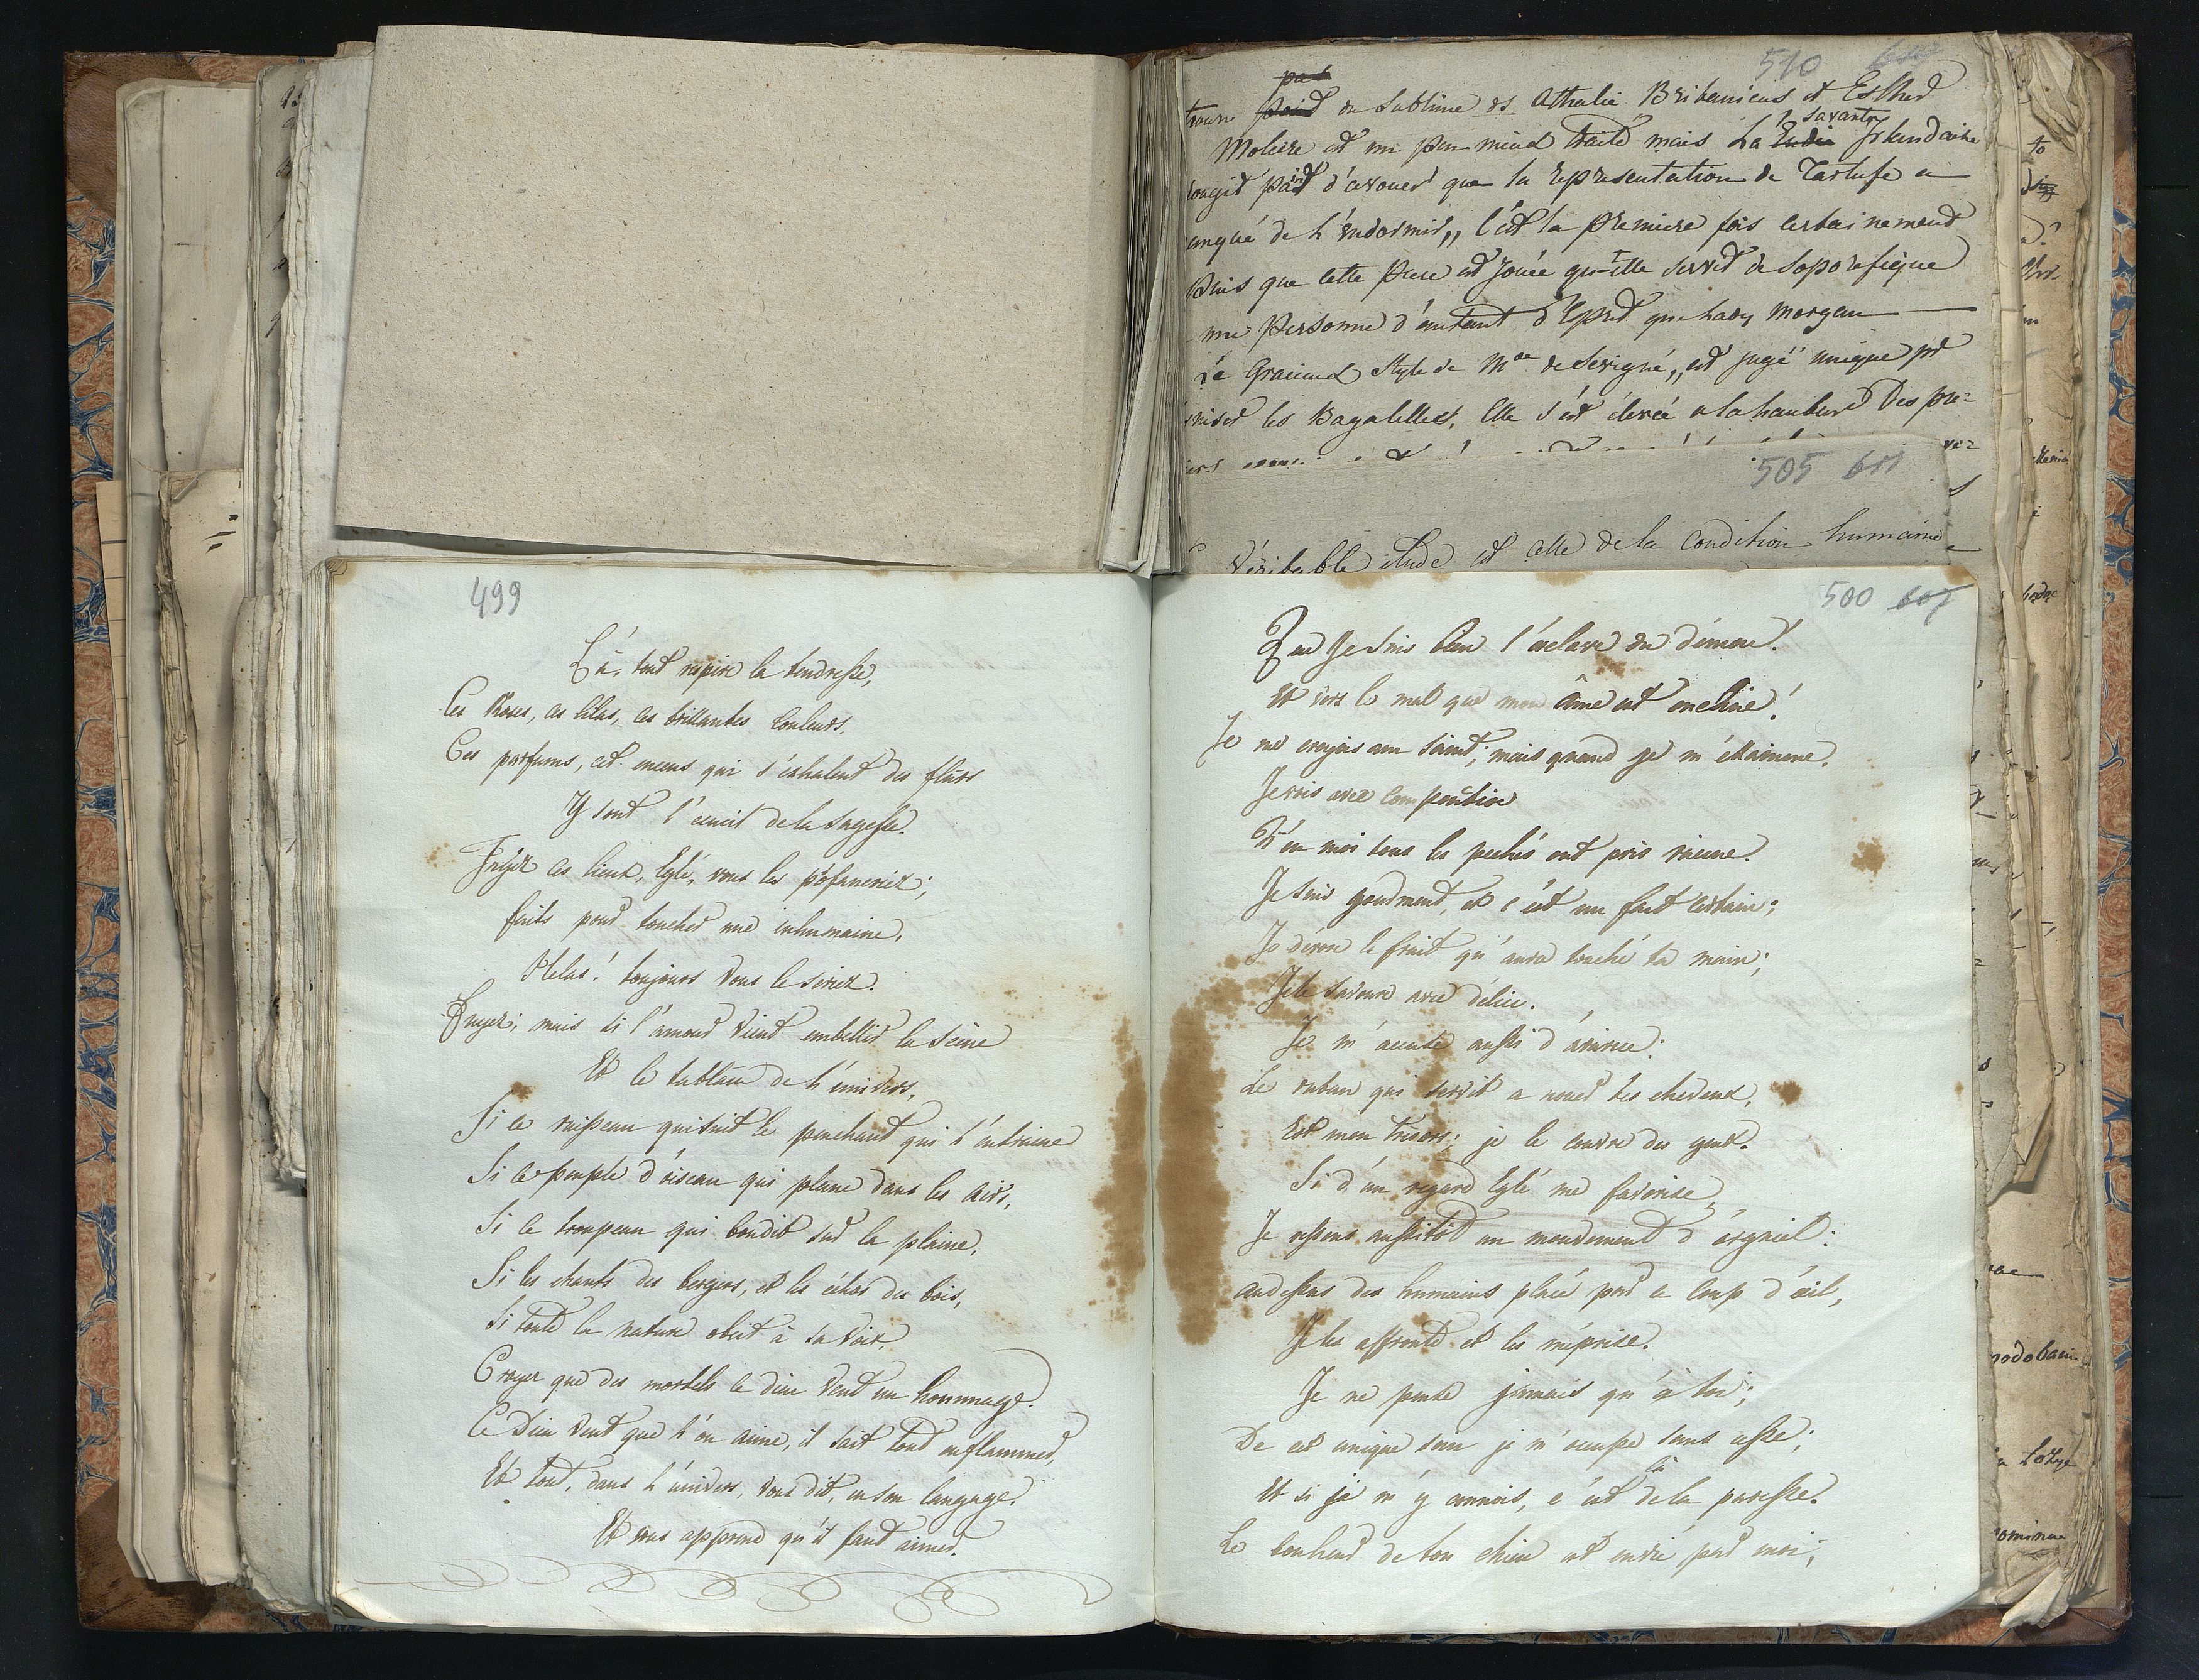 499
Là, tout respire la tendresse,
Ces Roses, ces lilas, ces brillantes Couleurs.
Ces parfums, cet encens qui s'exhalent des fleurs
Y sont l'écueil de la sagesse.
Fuyez ces lieux, Eglé, vous les profaneriez;
faits pour toucher une inhumaine.
Hélas! toujours vous le seriez.
Fuyez; mais si l'amour vient embellir la scène
Et le tableau de l'univers,
Si ce ruisseau qui suit le penchant qui l'entraine
Si ce peuple d'oiseau qui plane dans les airs,
Si ce troupeau qui bondit sur la plaine,
Si les chants des bergers, et les échos des bois,
Si toute la nature obeit à sa voix,
Croyez que des mortels ce dieu veut un hommage.
Ce Dieu veut que l'on aime, il sait tout enflammer,
Et tout, dans l'univers, vous dit, en son langage.
Et vous apprend qu'il faut aimer.
510
pas
du Sublime ds Athalie Britanicus et Esther
savante
Moliere est un peu mieux traité mais La Irlandaise
d'avouer que la representation de Tartufe a
de l'endormir,, C'est la premiere fois certainement
que cette piece est jouée qu'elle servit de soporefique
une personne d'autant d'Esprit que Lady Morgan
Le Gracieux Style de Mme de Sévigné,, est jugé unique pr
les Bagatelles, Elle s'est élevée a la hauteur Des pre=
505 611
Véritable étude est celle de la Condition humaine
500 607
Que Je suis bien l'esclave du démon!
Et vers le mal que mon âme est encline!
Je me croyais un saint; mais quand je m'éxamine.
Je vois avec componction
K'en moi tous les pechés ont pris racine.
Je suis gourmand, et c'est un fait certain;
Je dévore le fruit qu'aura touché ta main;
Je le savoure avec délice.
Je m'accuse aussi d'avarice:
Le ruban qui servit a nouer tes cheveux,
Est mon trésor; je le couvre des yeux.
Si d'un regard Eglé me favorise,
Je ressens aussitôt un mouvement d'orgueil:
au dessus des humains placé par ce coup d'œil,
Je les affronte et les méprise.
Je ne pense jamais qu'à toi;
De cet unique soin je m'occupe sans cesse;
là
Et si je m'y connois, c'est de la paresse.
Le bonheur de ton chien est envié par moi;